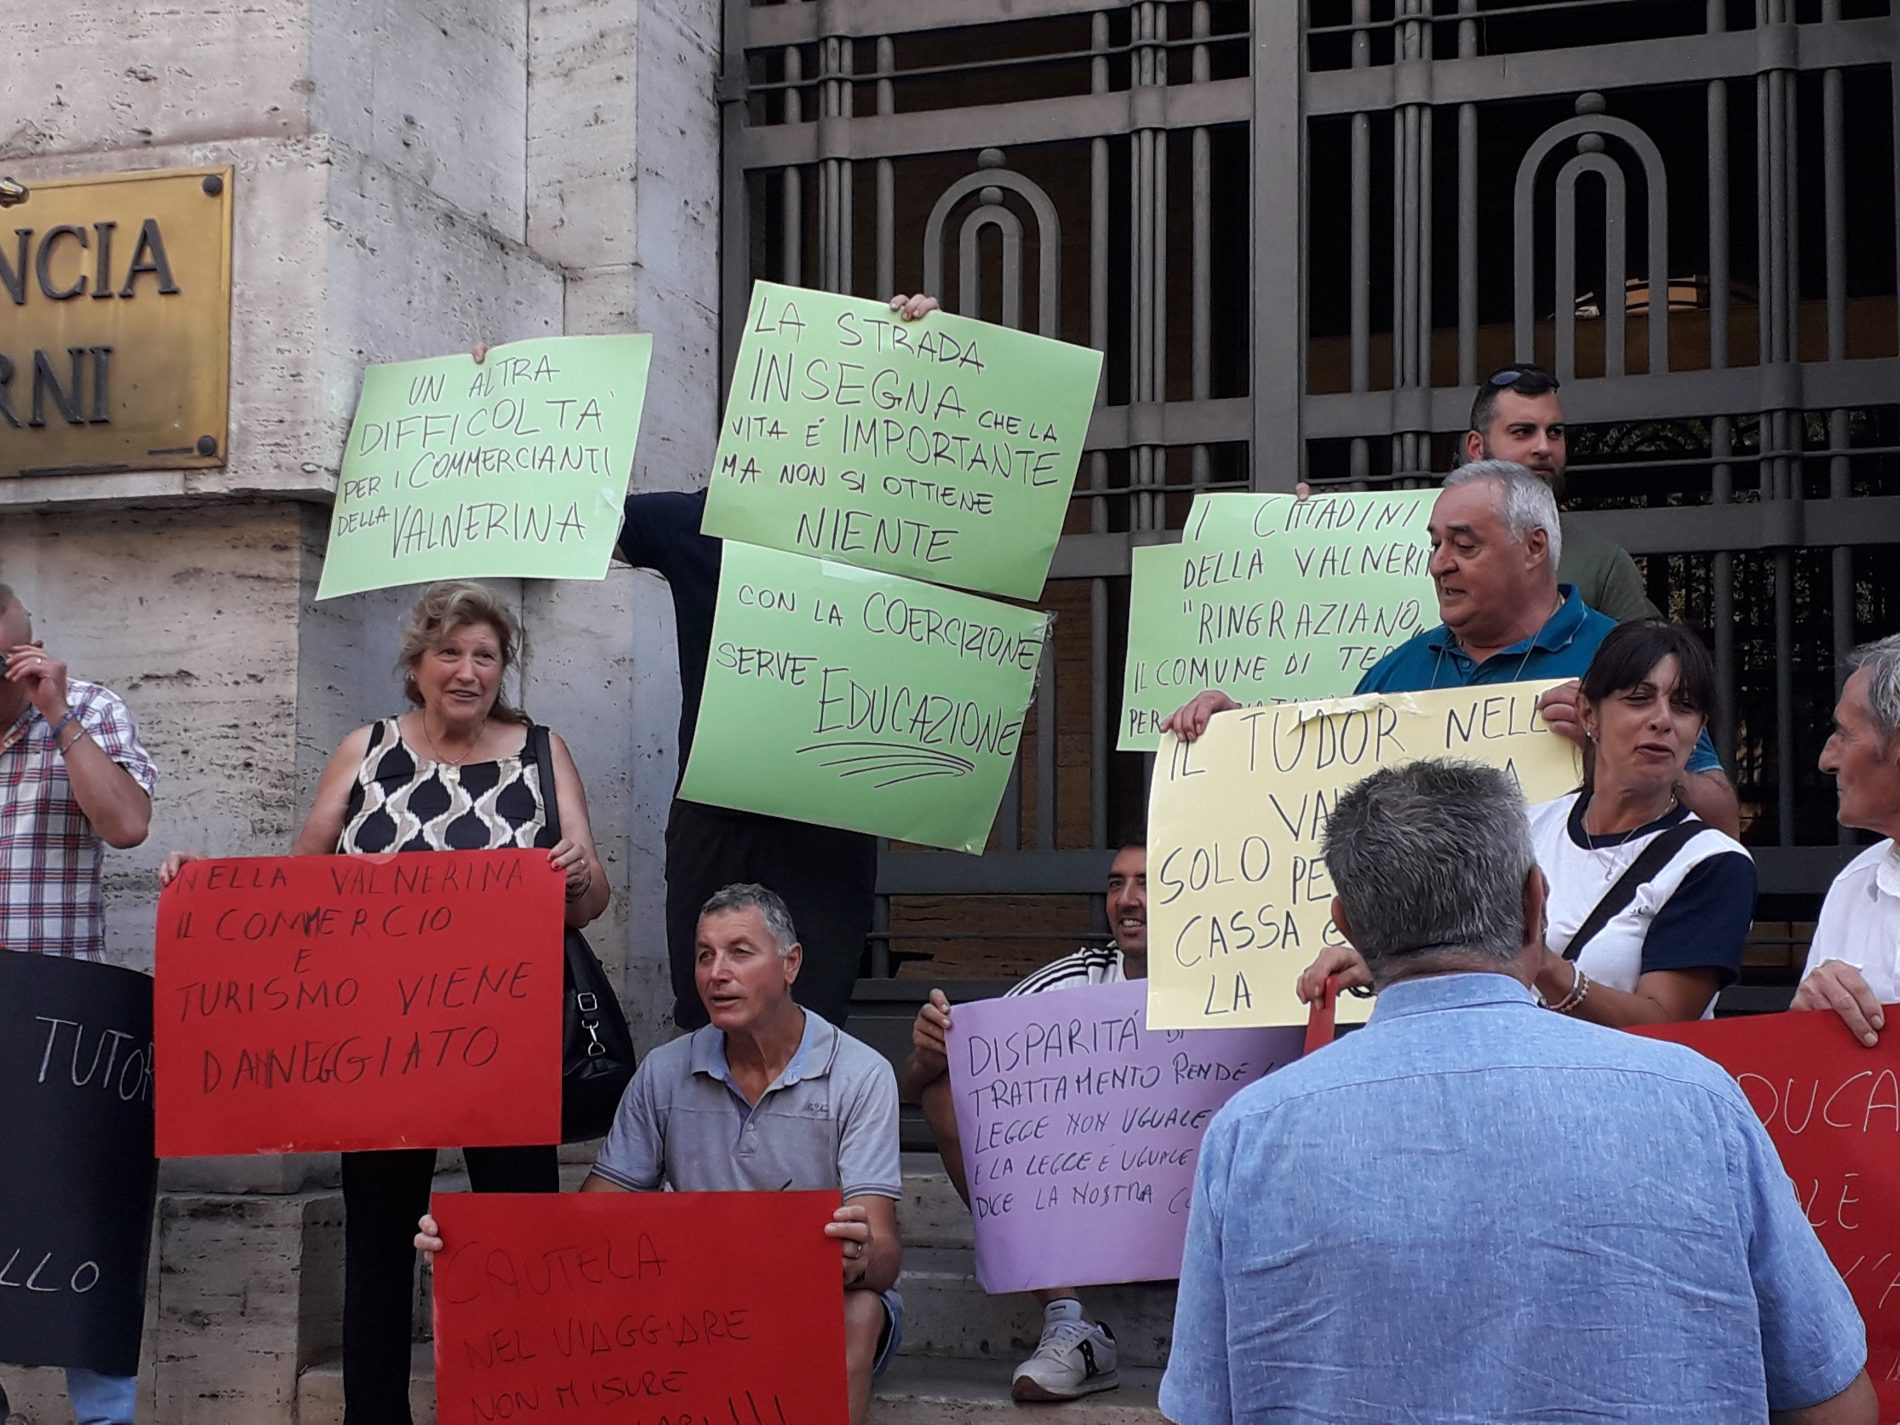 NCIA
RNI
UN ALTRA
DIFFICOLTA'
PER I COMMERCIANTI
DELLA VALNERINA
LA STRADA
INSEGNA CHE LA
VITA É IMPORTANTE
MA NON SI OTTIENE
NIENTE
CON LA COERCIZIONE
SERVE EDUCAZIONE
I CITTADINI
DELLA VALNERI
"RINGRAZIANO"
IL COMUNE DI TER
PER
IL TUDOR NELL
VA
SOLO PE
CASSA
LA
NELLA VALNERINA
IL COMMERCIO
E
TURISMO VIENE
DANNEGGIATO
TUTOR
LLO
DISPARITÁ DI
TRATTAMENTO RENDE
LEGGE NON UGUALE
E LA LEGGE É UGUALE
DICE LA NOSTRA
CAUTELA
NEL VIAGGIARE
NON MISURE
DUCA